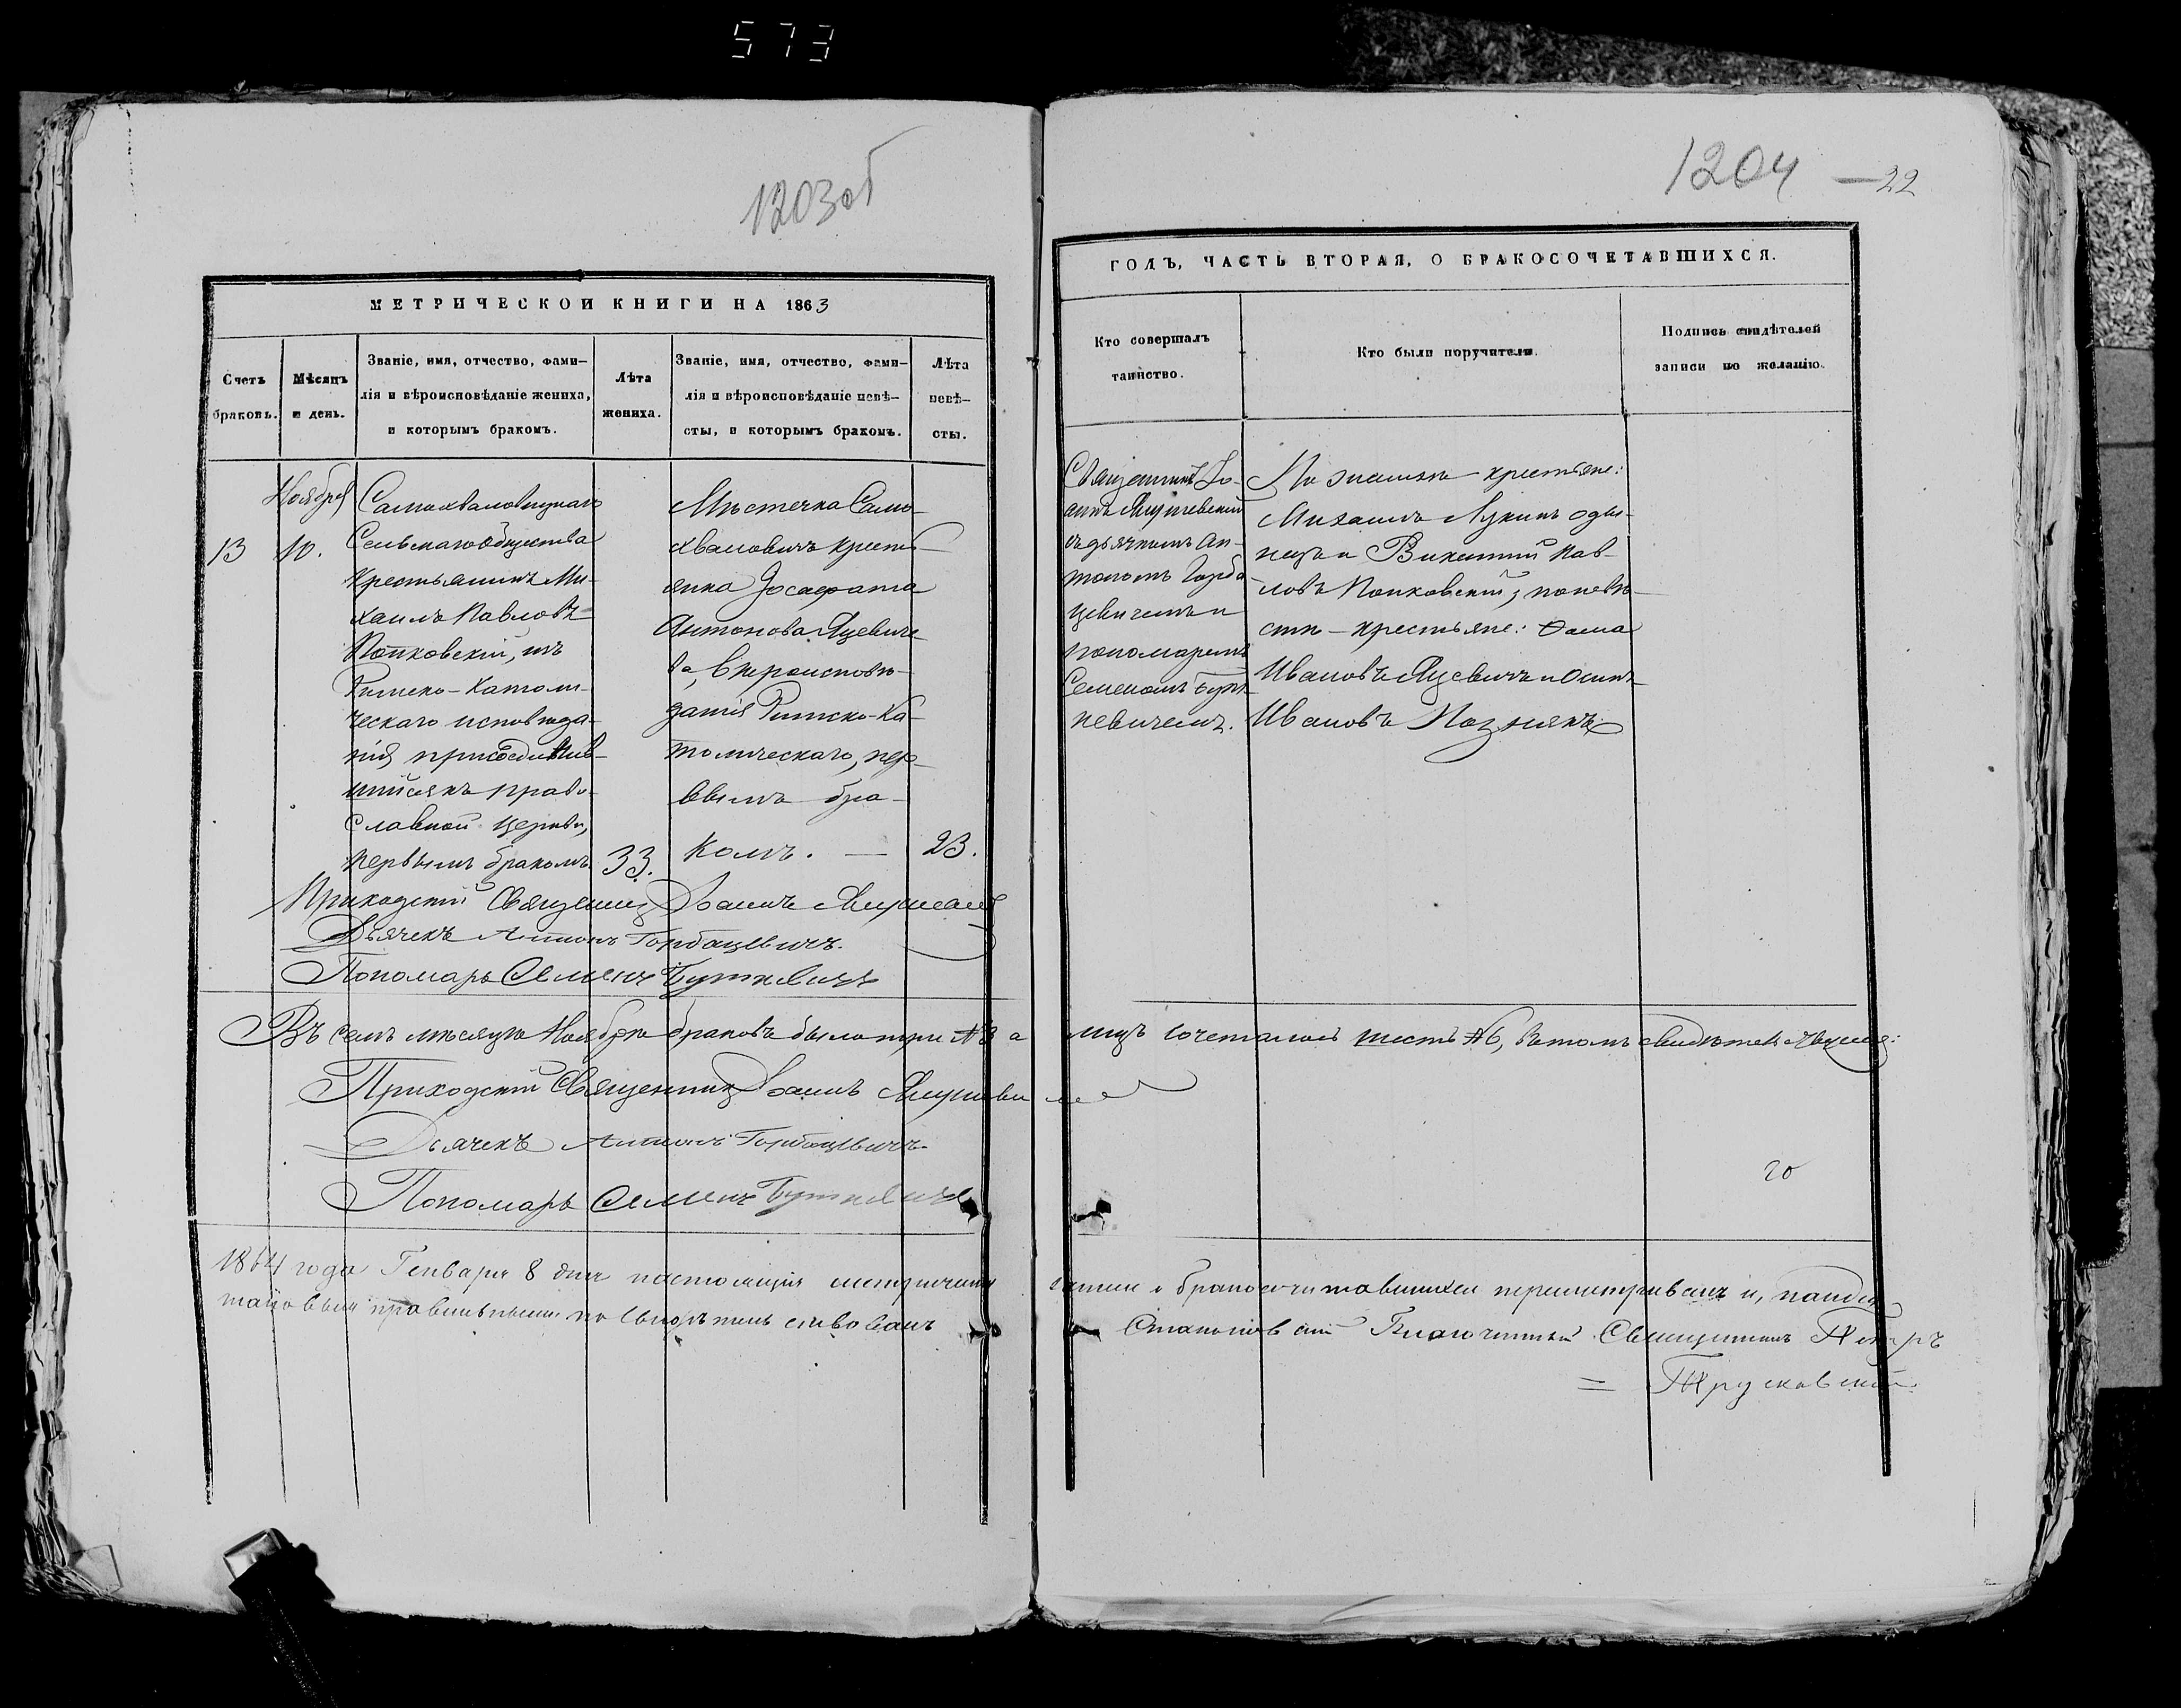 573
1203об
1204 — 22
МЕТРИЧЕСКОЙ КНИГИ НА 1863
ГОДЪ, ЧАСТЬ ВТОРАЯ, О БРАКОСОЧЕТАВШИХСЯ.
Счетъ
браковъ.
Мѣсяцъ
и день.
Званіе, имя, отчество, фами-
лія и вѣроисповѣданіе жениха,
и которымъ бракомъ.
Лѣта
жениха.
Званіе, имя, отчество, фами-
лія и вѣроисповѣданіе невѣ-
сты, и которымъ бракомъ.
Лѣта
невѣ-
сты.
Кто совершалъ
таинство.
Кто были поручители.
Подпись свидѣтелей
записи по желанію.
13
Ноября
10.
Самохваловицкаго
Сельскаго общества
Крестьянинъ Ми-
хаилъ Павловъ
Попковскій, изъ
Римско-Католи-
ческаго исповѣда-
нія присоединив-
шийся къ право-
славной церкви,
первымъ бракомъ
33.
Мѣстечка Само-
хваловичъ кресть-
янка Іосафата
Антонова Яцевиче-
ва, вѣроисповѣ-
данія Римско-Ка-
толическаго, пер-
вымъ бра-
комъ. —
23.
Священникъ Іо-
аннъ
съ дьячкомъ Ан-
тономъ Горба-
цевичемъ и
пономаремъ
Семеномъ Бут-
кевичемъ.
По женихѣ - крестьяне:
Михаилъ Лукинъ Оды-
нецъ и Викентий Пав-
ловъ Попковскій; по невѣ-
стѣ - крестьяне: Ѳома
Ивановъ Яцевичъ и Осипъ
Ивановъ Познякъ
Приходскій Священникъ Іоаннъ
Дьячекъ Антонъ Горбацевичъ.
Пономарь Семенъ Буткевичъ
Въ семъ мѣсяцѣ Ноябрѣ браковъ было три №3 а лицъ сочеталось шесть №6, въ томъ свидѣтельствуемъ:
Приходскій Священникъ Іоаннъ
Дьячекъ Антонъ Горбацевичъ
Пономарь Семенъ Буткевичъ
20
1864 года Генваря 8 дня настоящія метрическія записи о бракосочитавшихся пересматривалъ и, нашедъ
таковыя правильными по сему
Благочинный Священникъ Петръ
= Трусковскій.